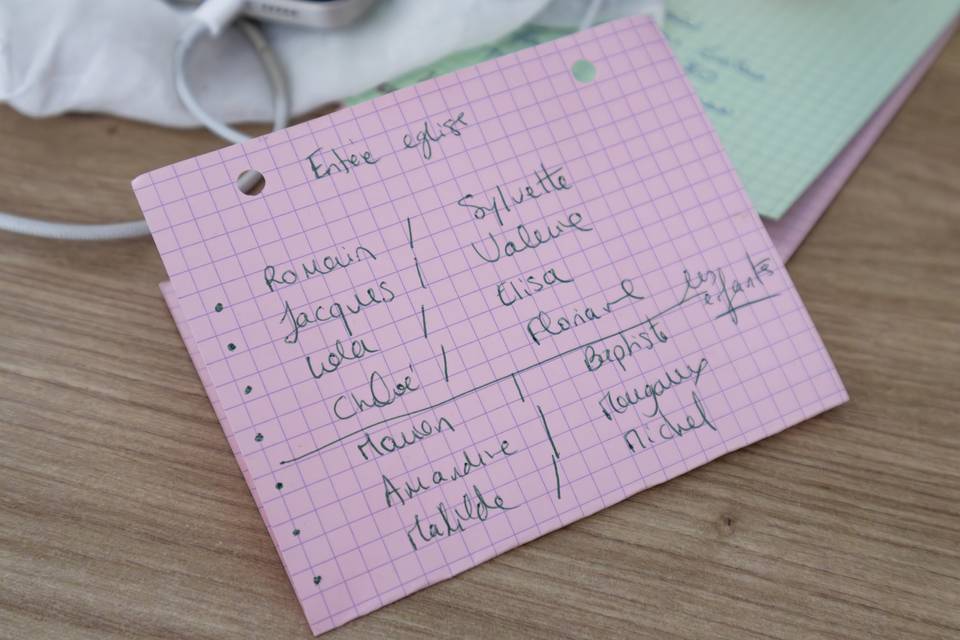 Entrée eglise
• Romain / Sylvette
• Jacques / Valerie
• Lola / Elisa
• Chloé / Floriane
les enfants
• Manon | Baptiste
• Amandine / Mougaux
• Mathilde / Michel